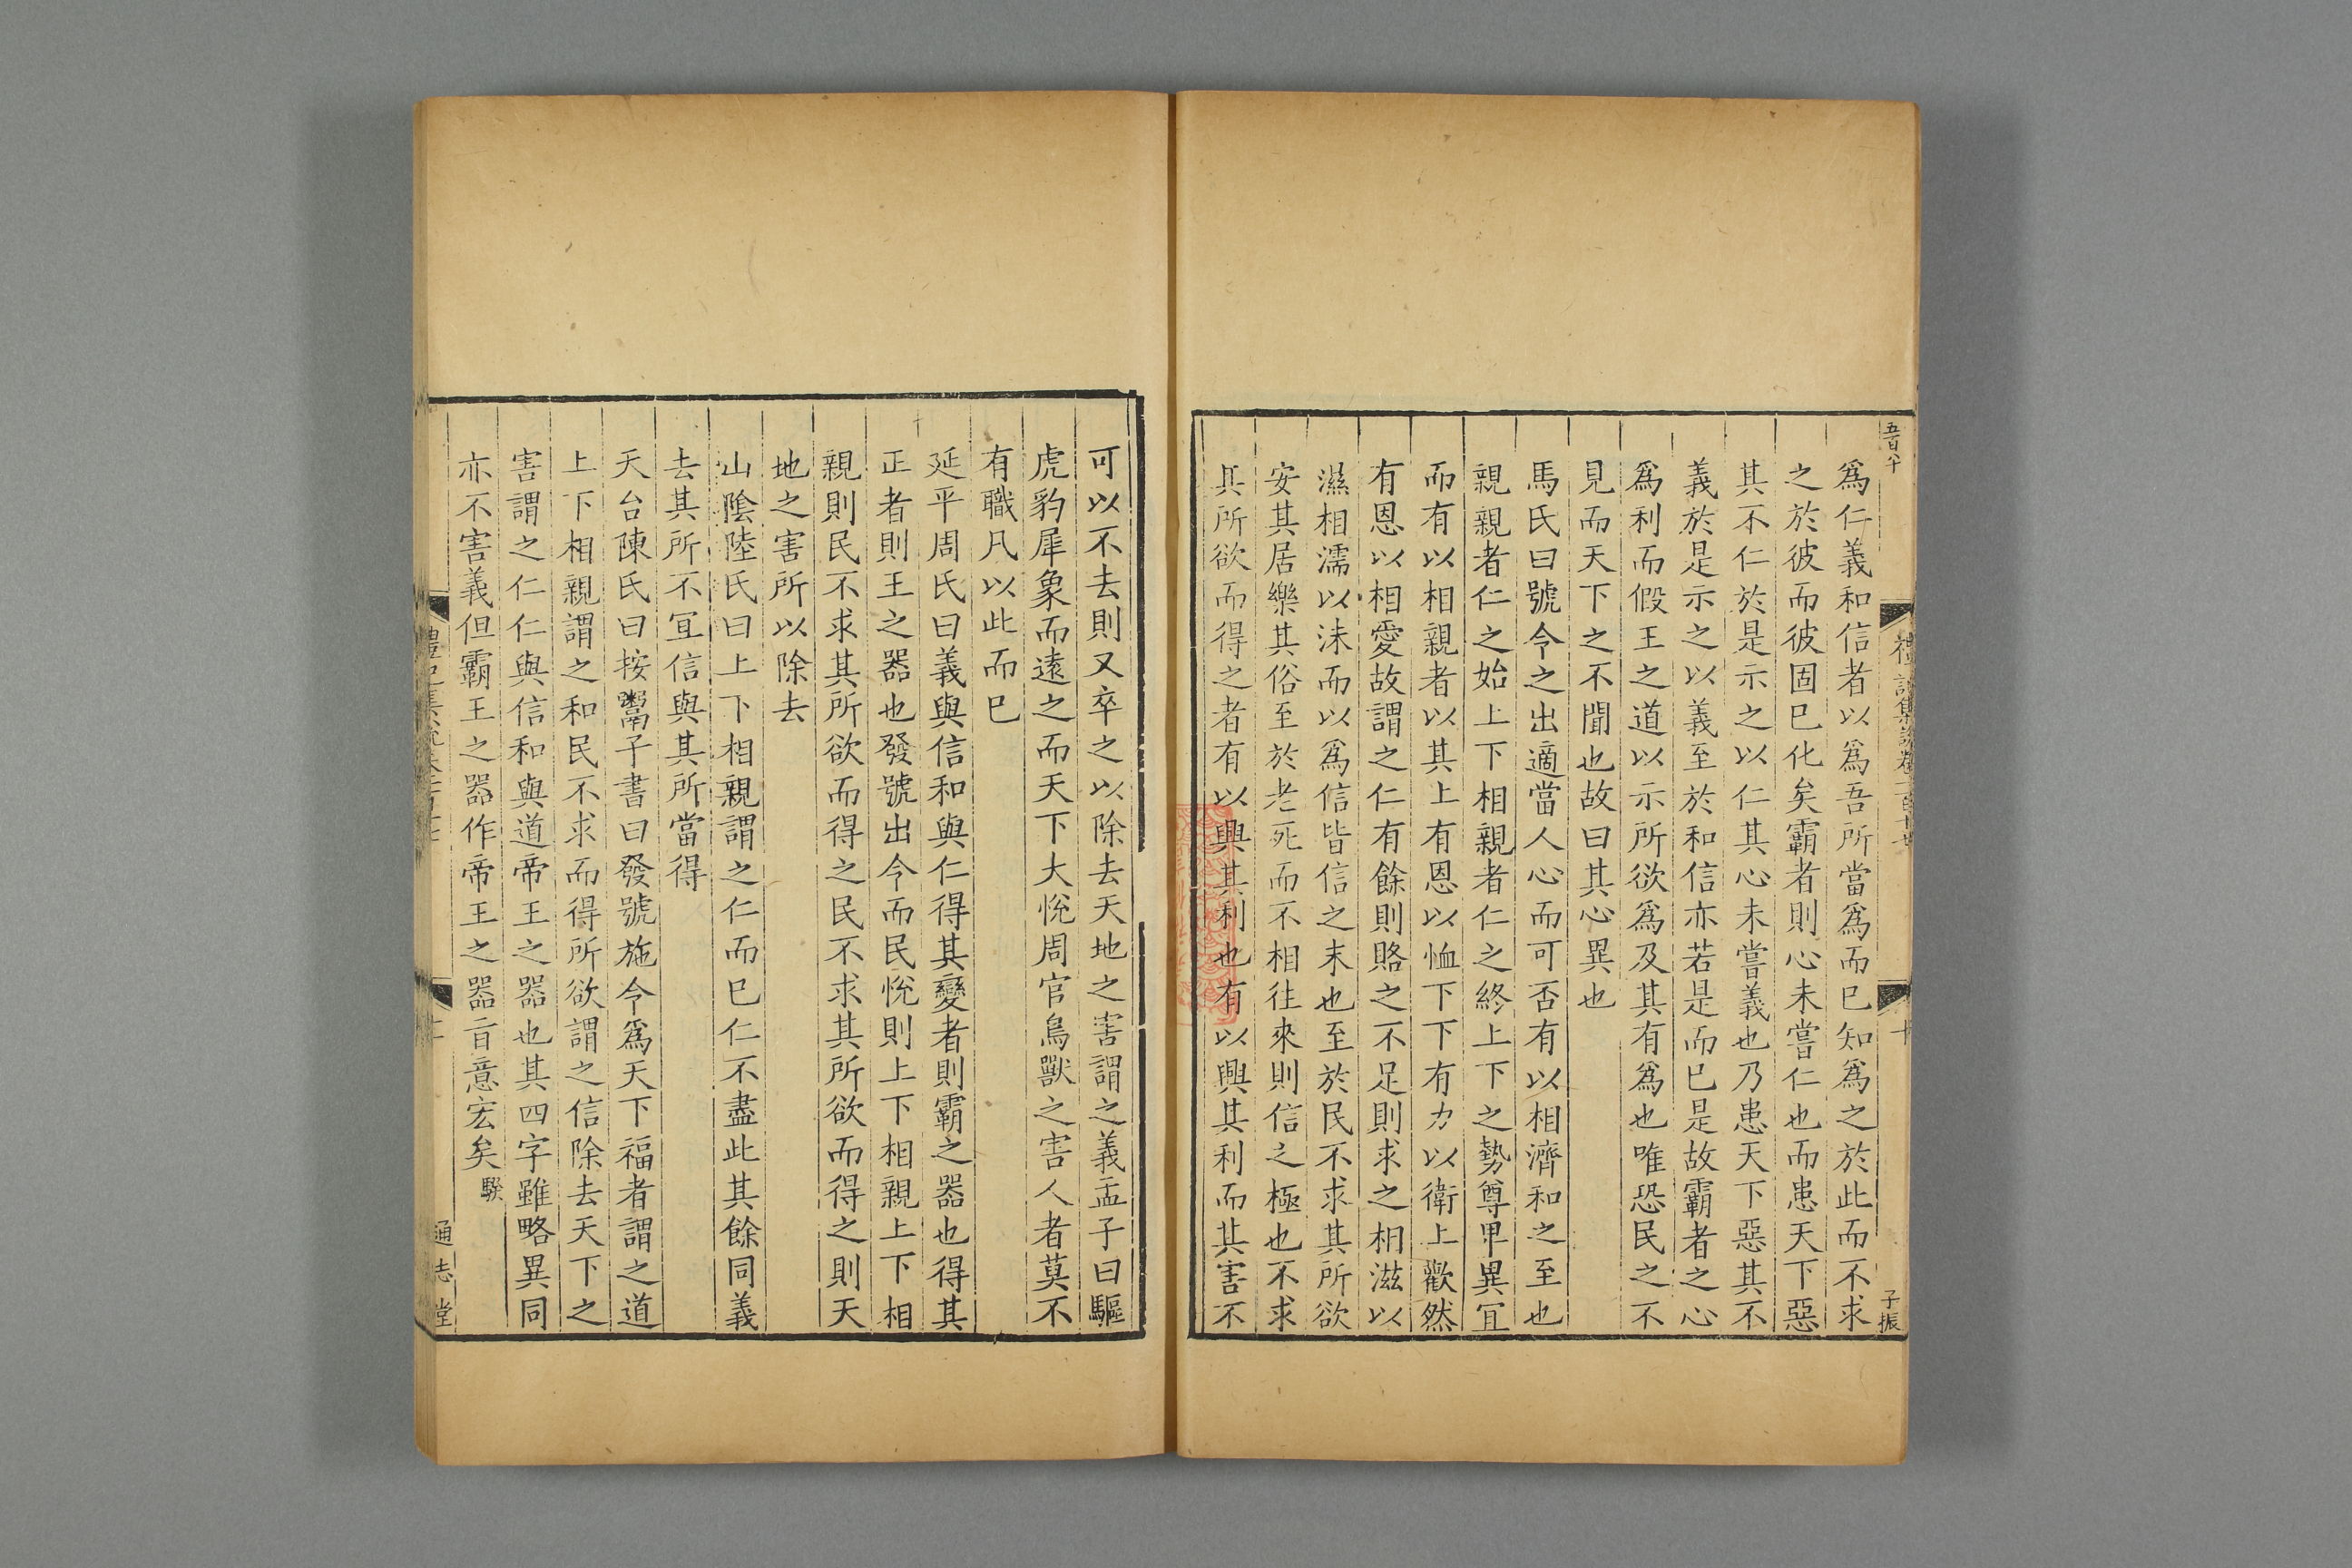 爲仁義和信者以爲吾所當爲而已知爲之於此而不求
之於彼而彼固已化矣霸者則心未嘗仁也而患天下惡
其不仁於是示之以仁其心未嘗義也乃患天下惡其不
義於是示之以義至於和信亦若是而已是故霸者之心
爲利而假王之道以示所欲爲及其有爲也唯恐民之不
見而天下之不聞也故曰其心異也
馬氏曰號令之出適當人心而可否有以相濟和之至也
親親者仁之始上下相親者仁之終上下之勢尊卑異冝
而有以相親者以其上有恩以恤下下有力以衛上歡然
有恩以相愛故謂之仁有餘則賂之不足則求之相滋以
濕相濡以沫而以爲信皆信之末也至於民不求其所欲
安其居樂其俗至於老死而不相往來則信之極也不求
其所欲而得之者有以興其利也有以興其利而其害不
可以不去則又卒之以除去天地之害謂之義孟子曰驅
虎豹犀象而遠之而天下大悅周官鳥獸之害人者莫不
有職凡以此而已
延平周氏曰義與信和與仁得其變者則霸之器也得其
正者則王之器也發號出令而民悅則上下相親上下相
親則民不求其所欲而得之民不求其所欲而得之則天
地之害所以除去
山陰陸氏曰上下相親謂之仁而已仁不盡此其餘同義
去其所不冝信與其所當得
天台陳氏曰按鬻子書曰發號施令爲天下福者謂之道
上下相親謂之和民不求而得所欲謂之信除去天下之
害謂之仁仁與信和與道帝王之器也其四字雖略異同
亦不害義但霸王之器作帝王之器㫖意宏矣
通志堂